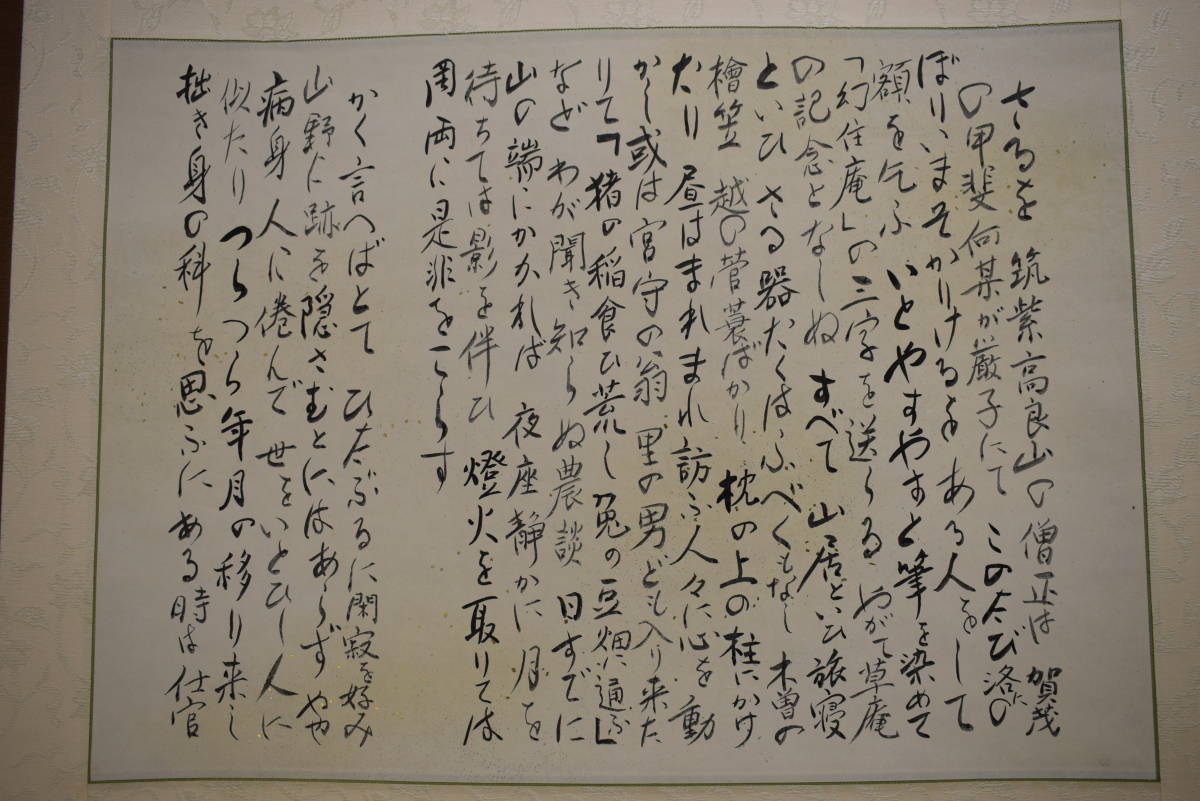 さるを 筑紫高良山の僧正は 賀茂
の甲斐何某が厳子にて このたび洛に
のぼりいまそかりけるを ある人をして
額を乞ふ いとやすやすと筆を染めて
「幻住庵」の三字を送らる やがて草庵
の記念となしぬ すべて 山居といひ旅寝
といひ さる器たくはふべくもなし 木曽の
檜笠 越の菅蓑ばかり 枕の上の柱にかけ
たり 昼はまれまれ訪ふ人々に心を動
かし或は宮守の翁 里の男ども入り来た
りて「猪の稲食ひ荒し 兎の豆畑に通ふ」
など わが聞き知らぬ農談 日すでに
山の端にかかれば 夜座静かに 月を
待ちては影を伴ひ 燈火を取りては
罔両に是非をこらす
かく言へばとて ひたぶるに閑寂を好み
山野に跡を隠さむとにはあらず やや
病身 人に倦んで 世をいとひし人に
似たり つらつら年月の移り来し
拙き身の科を思ふに ある時は 仕官